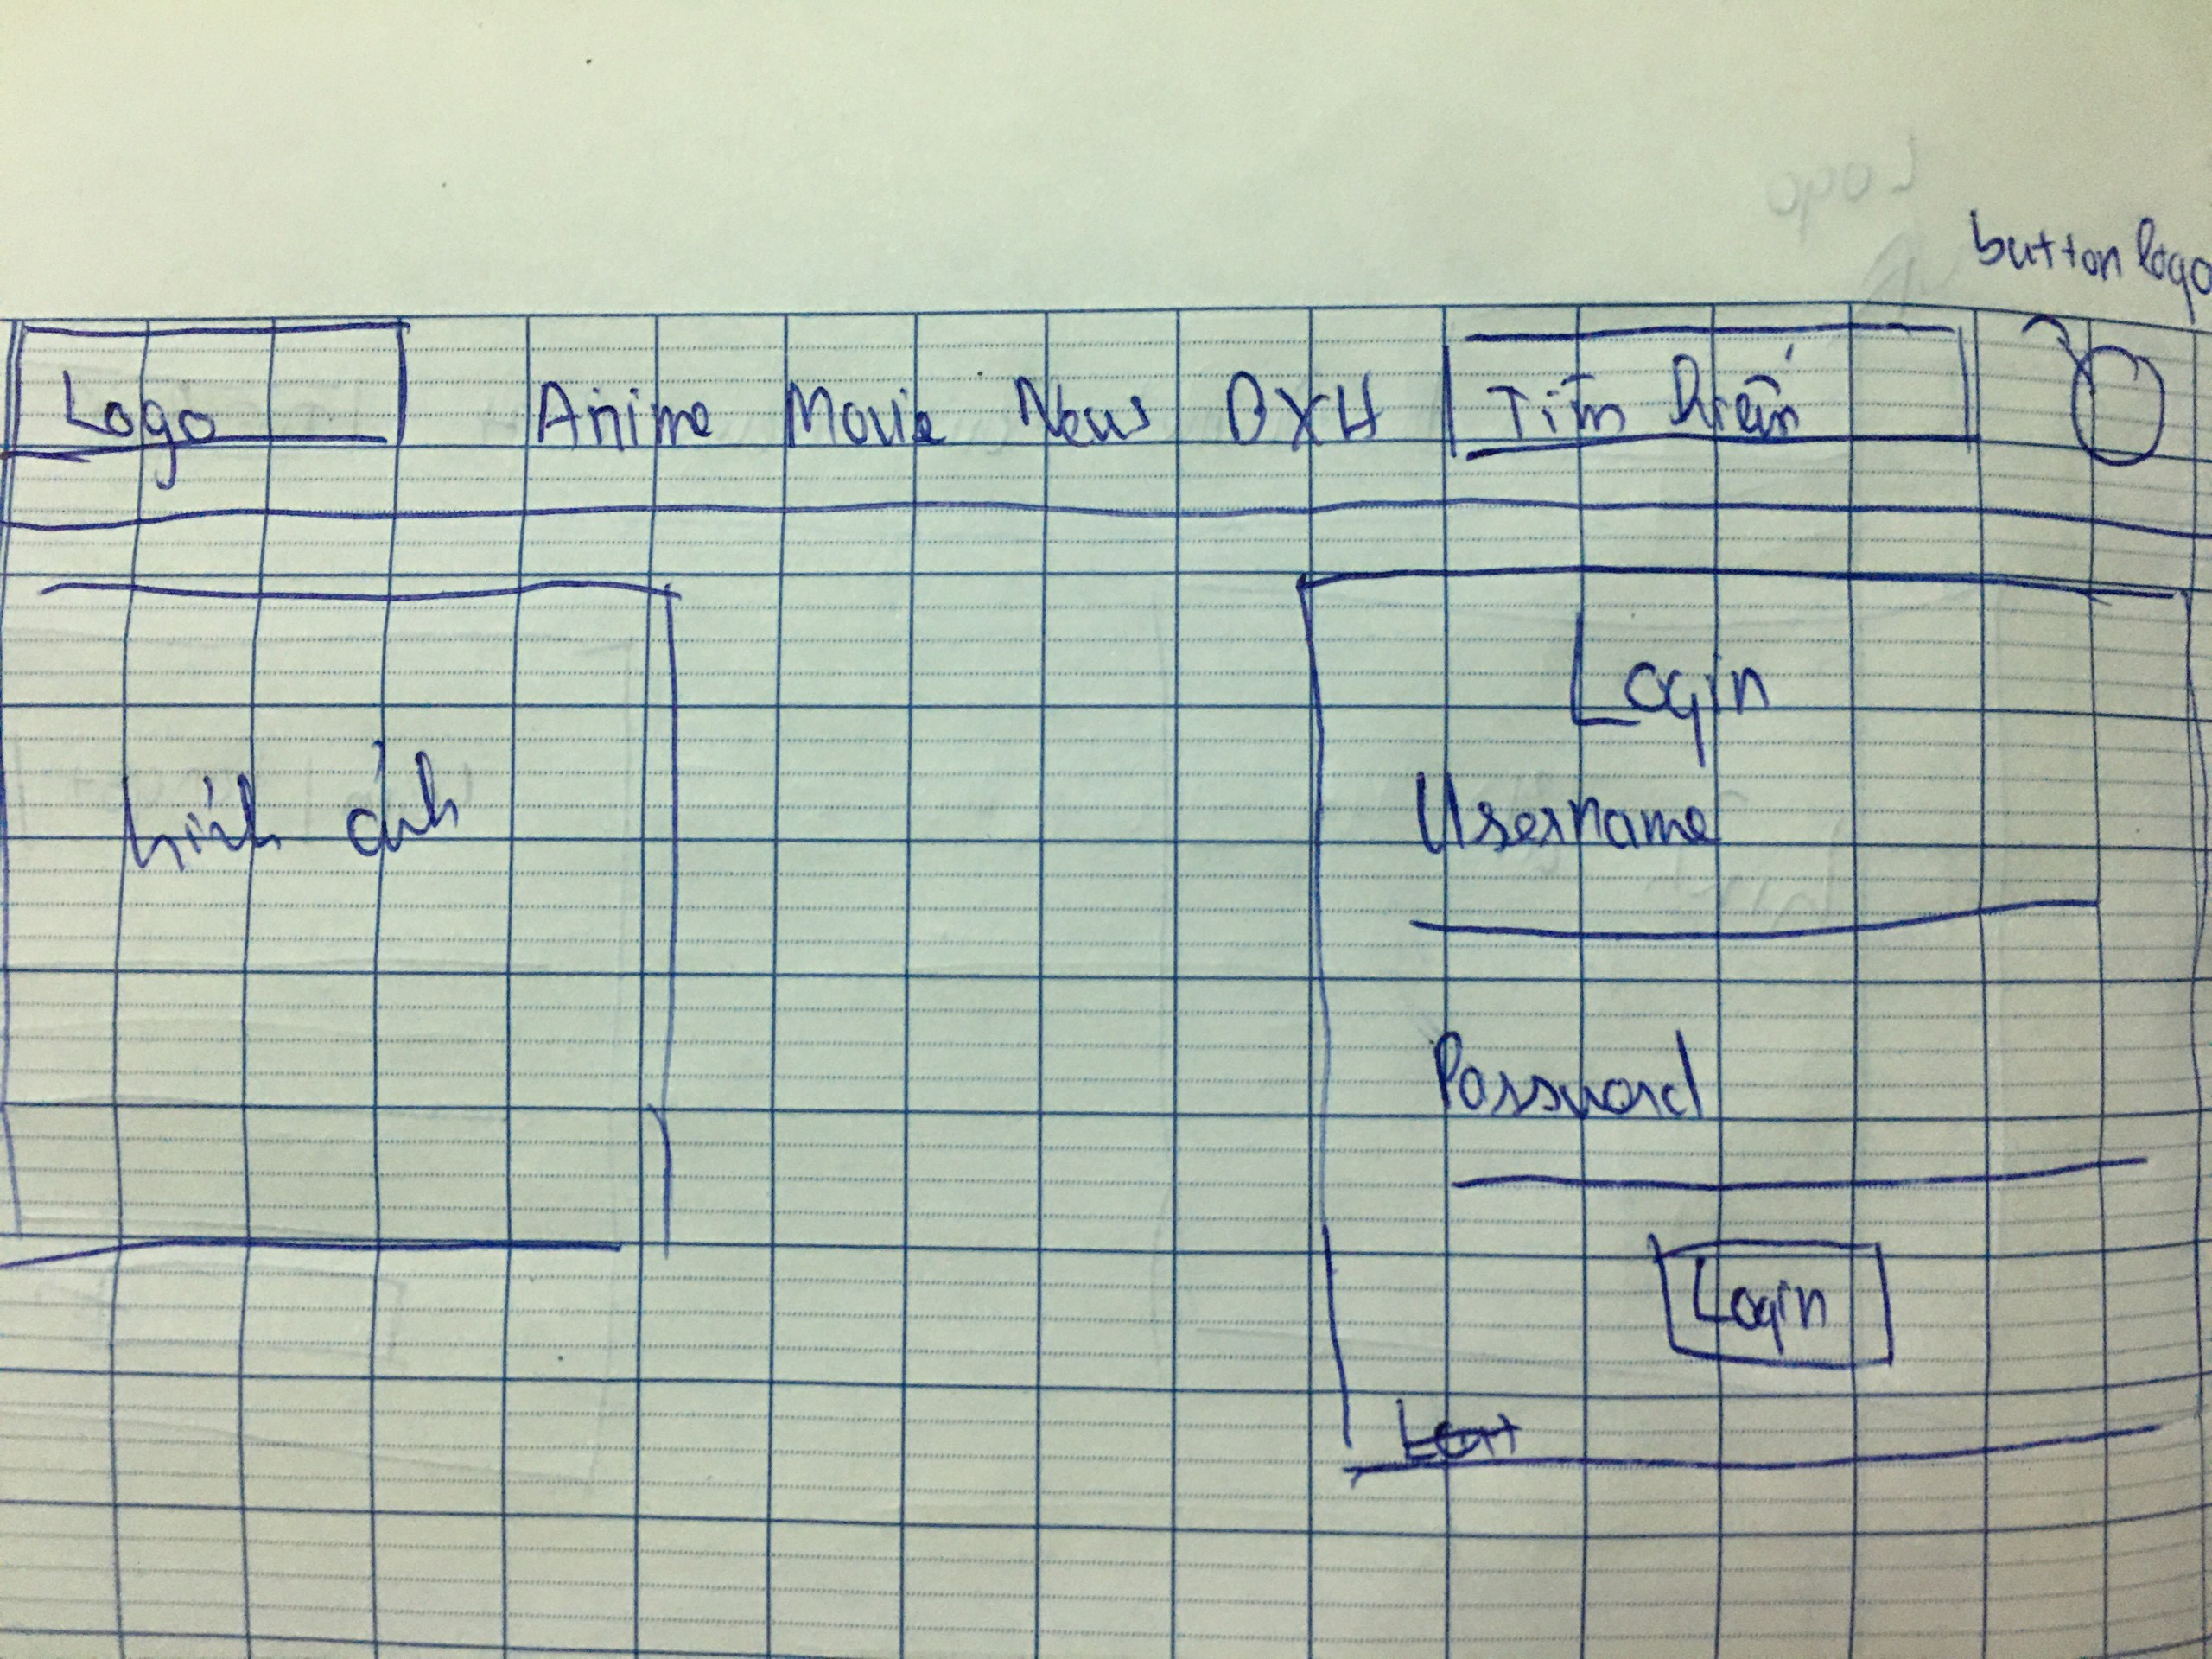 button logo
Logo Anime Movie News BXH Tìm kiếm
Login
hình ảnh Username
Password
Login